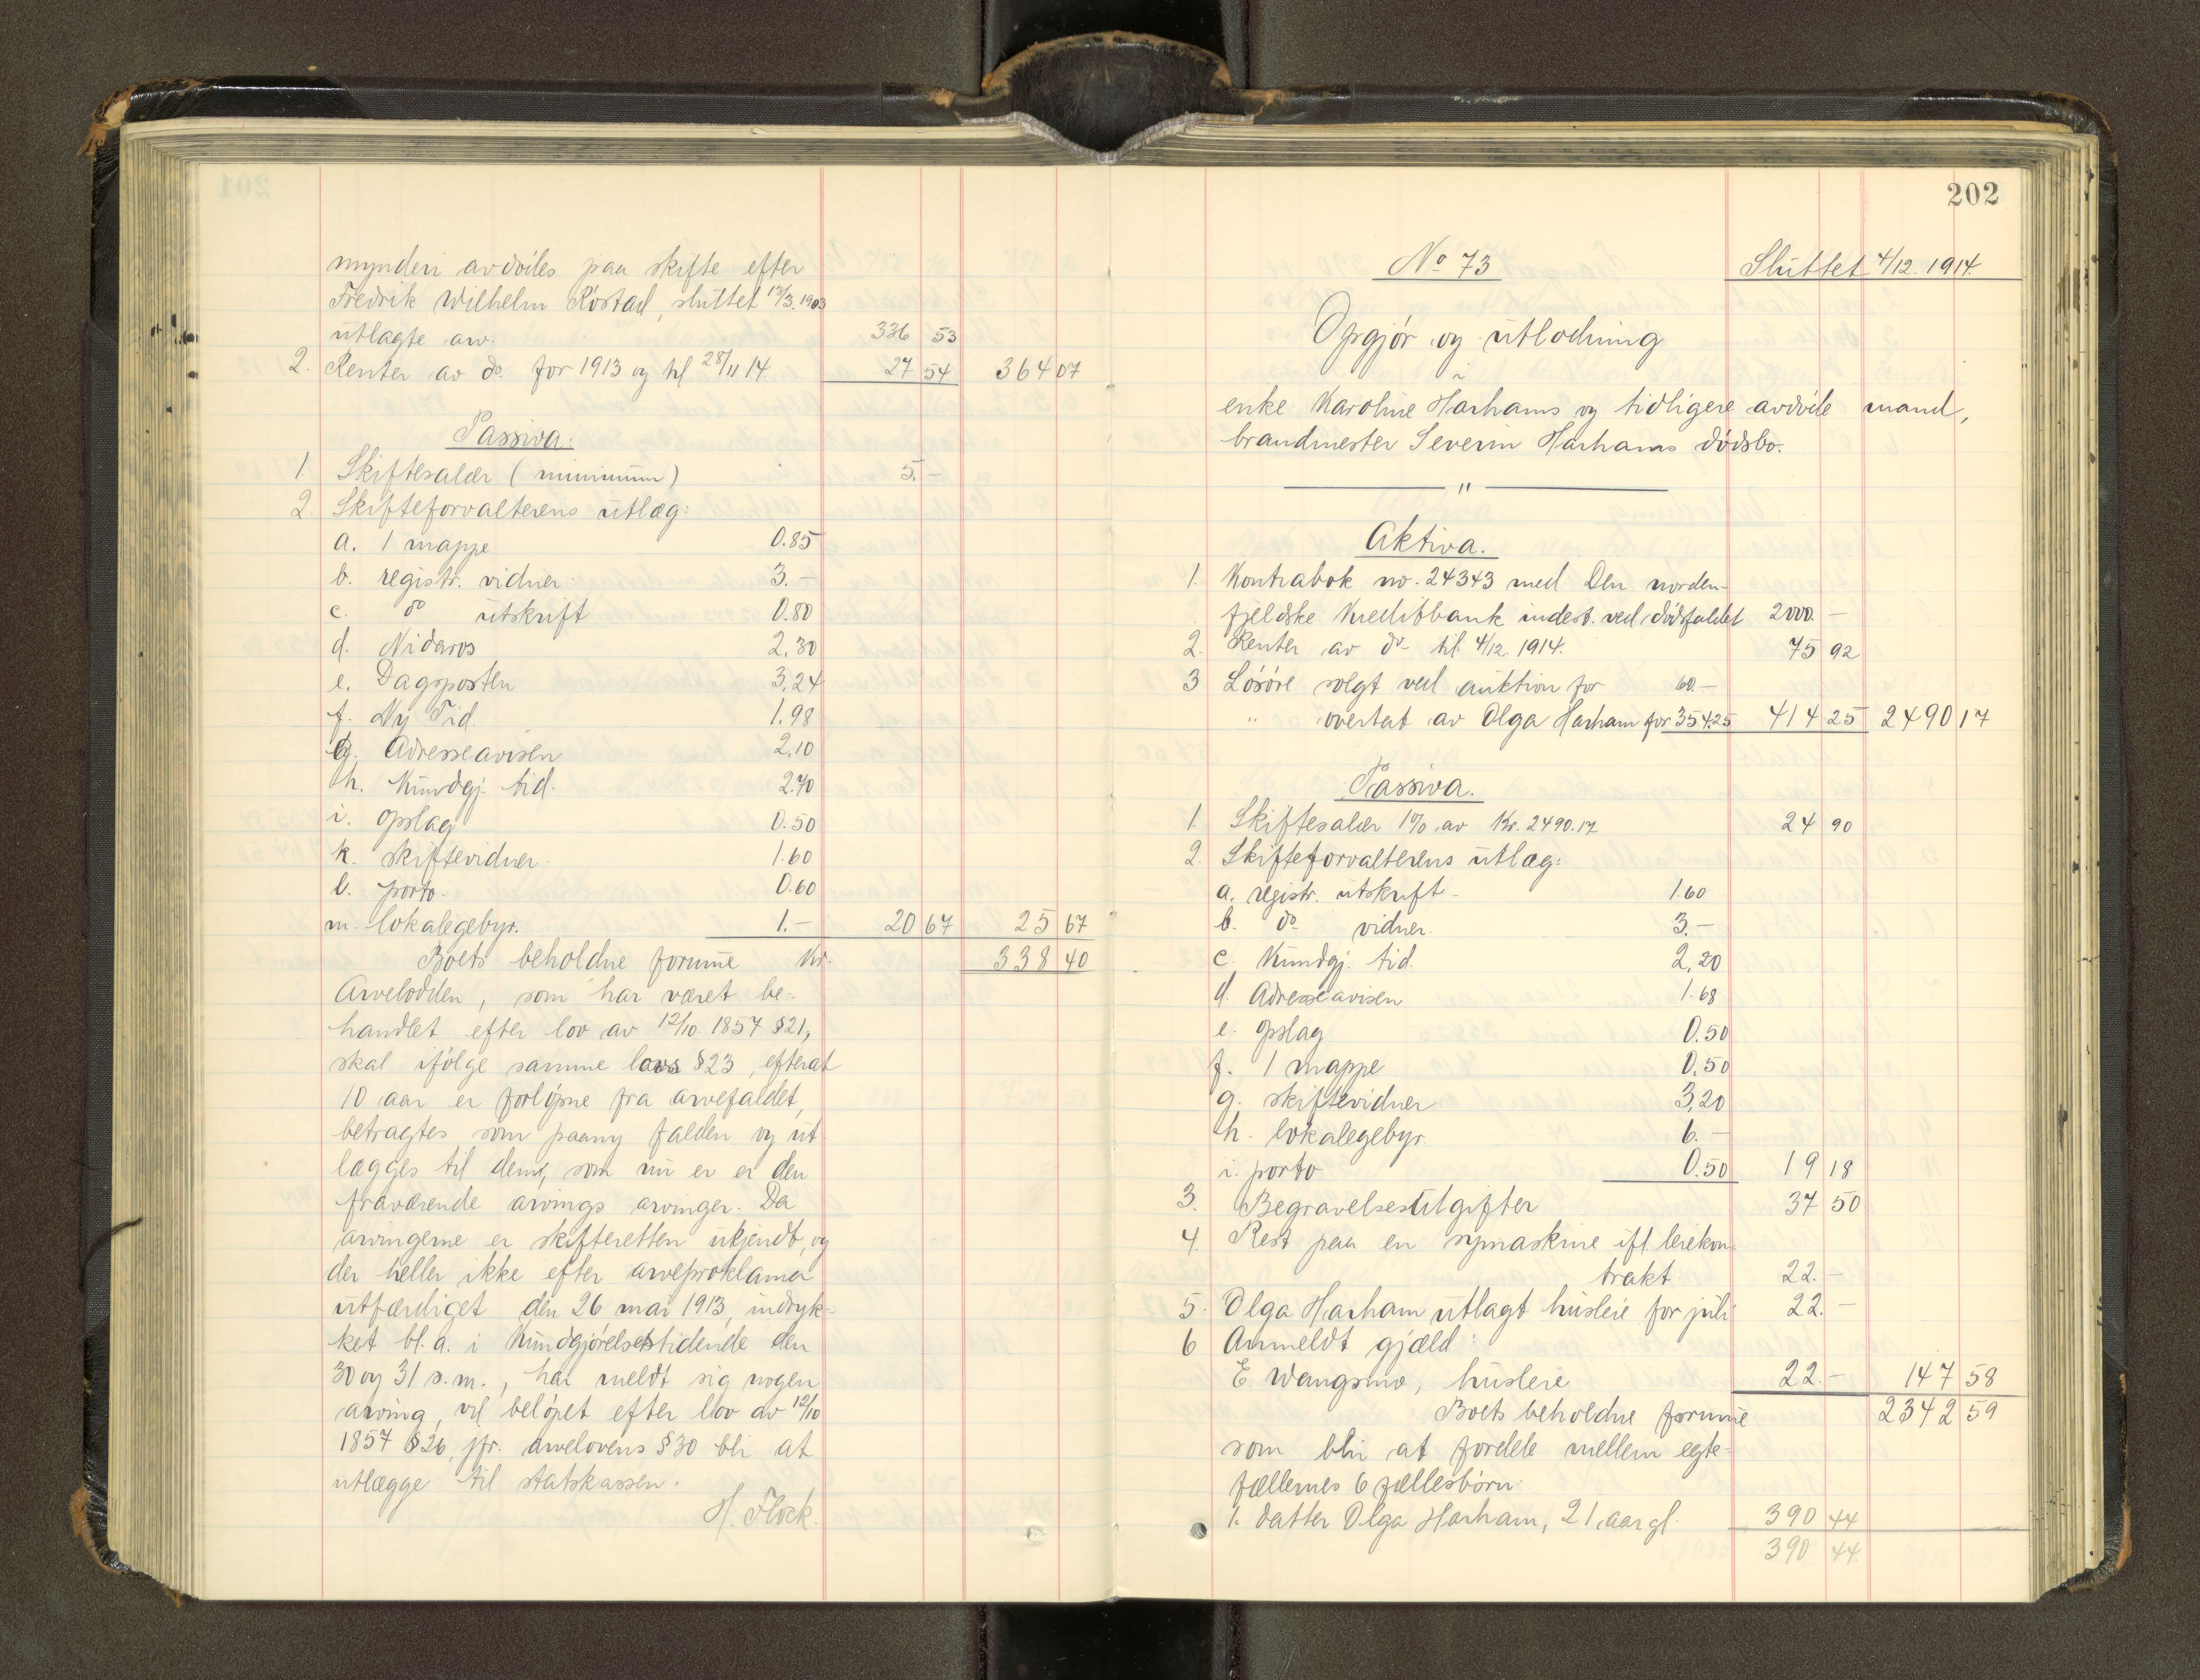 mynderi avdödes paa skifte efter
Fredrik Wilhelm Röstad, sluttet 12/3. 1903
utlagte arv. 336 53
2. Renter av do. for 1913 og til 28/11 14. 27 54 364 07
Passiva:
1. Skiftesalær (minimum) 5.-
2. Skifteforvalterens utlæg:
a. 1 mappe 0.85
b. registr. vidner 3.-
c. do utskrift 0.80
d. Nidaros 2.30
e. Dagsposten 3.24
f. Ny Tid. 1.98
g. Adresseavisen 2.10
h. Kundgj. tid. 2.70
i. opslag 0.50
k. skiftevidner. 1.60
l. porto. 0.60
m. lokalegebyr. 1.- 20 67 25 67
Boets beholdne formue Kr. 338 40
Arvelodden, som har været be-
handlet efter lov av 12/10. 1857 §21,
skal ifölge samme lovs §23, efterat
10 aar er forlöpne fra arvefaldet,
betragtes som paany falden og ut
lægges til dem, som nu er er den
fraværende arvings arvinger. Da
arvingerne er skifteretten ukjendt, og
der heller ikke efter arveproklama
utfærdiget den 26 mai 1913, indryk-
ket bl. a. i Kundgjörelsestidende den
30 og 31 s.m., har meldt sig nogen
arving, vil belöpet efter lov av 12/10
1857 §26, jfr. arvelovens §30 bli at
utlægge til statskassen.
H. Flock.
202
No 73 Sluttet 4/12. 1914.
Opgjör og utlodning
i
enke Karoline Harhams og tidligere avdöde mand,
brandmester Severin Harhams dödsbo.
"
Aktiva.
1. Kontrabok no. 24343 med Den norden-
fjeldske Kreditbank indest. ved dödsfaldet 2000.-
2. Renter av do til 4/12 1914. 75 92
3 Lösöre solgt ved auktion for 60.-
" overtat av Olga Harham for 354.25 414 25 2490 17
Passiva.
1. Skiftesalær 1% av Kr. 2490.17 24 90
2. Skifteforvalterens utlæg:
a. registr. utskrift 1.60
b. do vidner. 3.-
c. Kundgj. tid. 2,20
d. Adresseavisen 1.68
e. opslag 0.50
f. 1 mappe 0.50
g. skiftevidner 3,20
h. lokalegebyr. 6.-
i. porto 0.50 19 18
3. Begravelsesutgifter 37 50
4. Rest paa en symaskine ifl. leiekon-
trakt 22.-
5. Olga Harham utlagt husleie for juli 22.-
6 Anmeldt gjæld:
E. Wangsmo, husleie 22.- 147 58
Boets beholdne formue 2342 59
som blir at fordele mellem egte-
fællernes 6 fællesbörn:
1. datter Olga Harham, 21 aar gl. 390 44
390 44